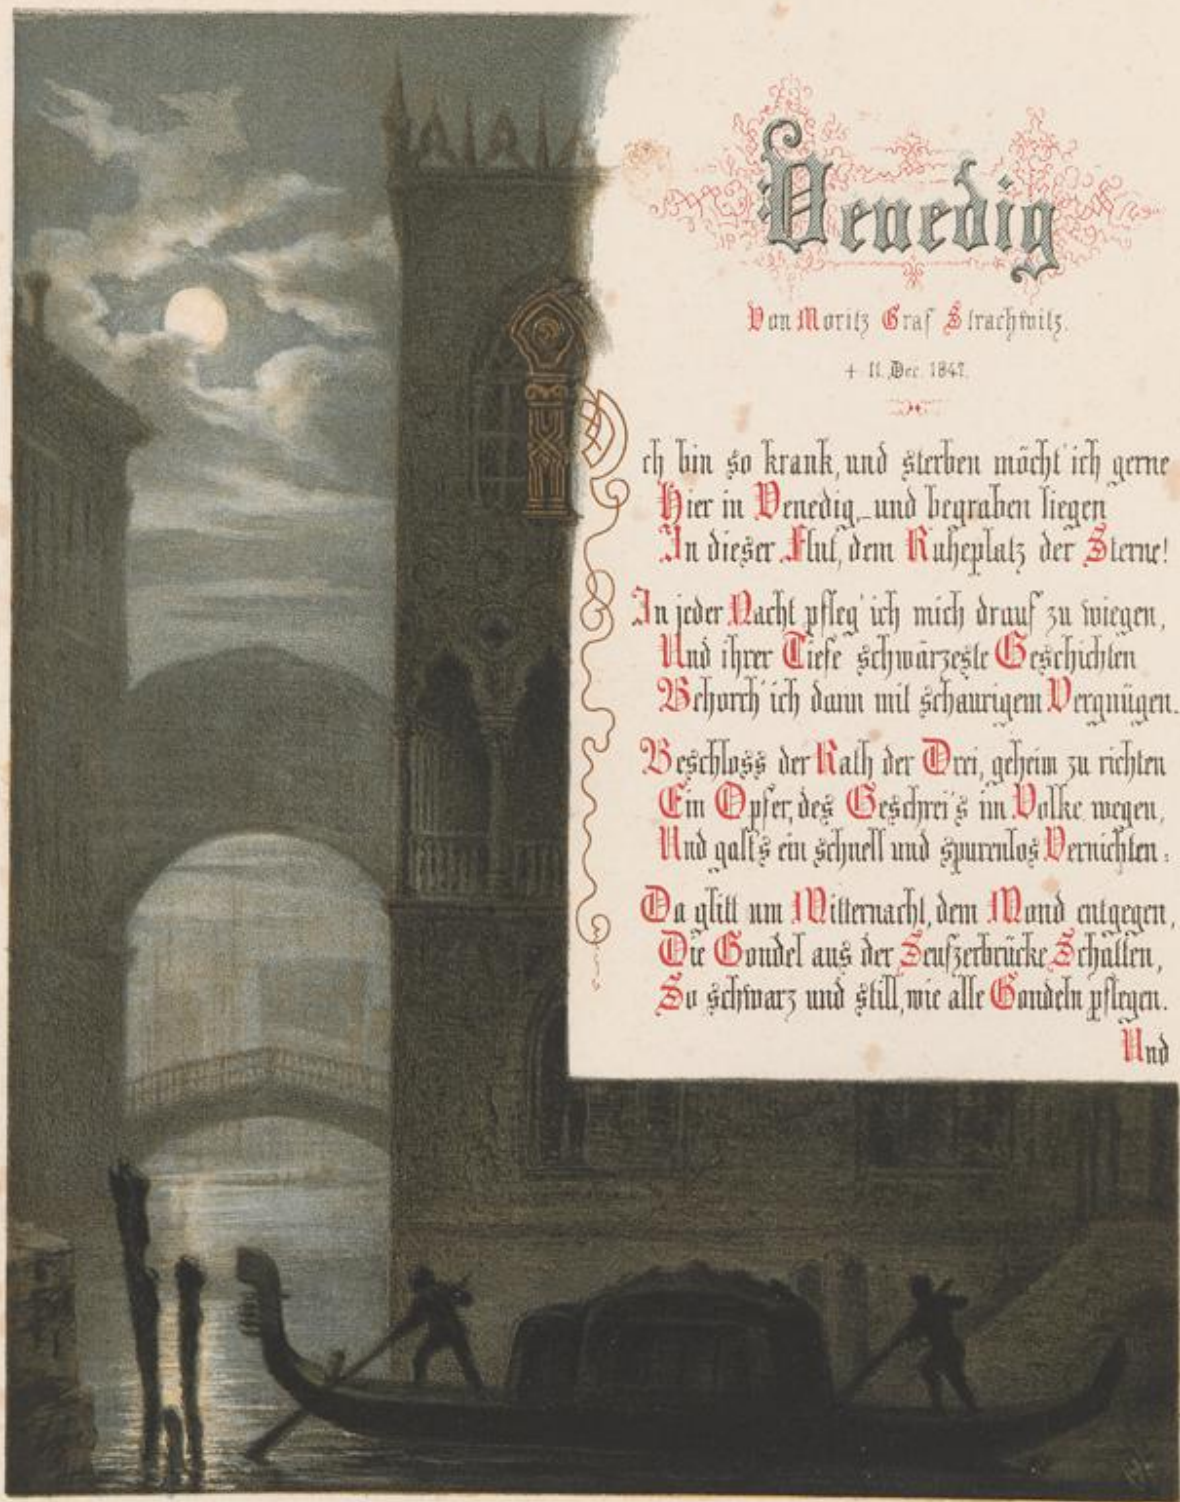 Venedig
Von Moritz Graf Strachwitz.
+ 11. Dec. 1847.
Ich bin so krank, und sterben möcht' ich gerne
Hier in Venedig, und begraben liegen
In dieser Flut, dem Ruheplatz der Sterne!
In jeder Nacht pfleg' ich mich drauf zu wiegen,
Und ihrer Tiefe schwärzeste Geschichten
Behorch' ich dann mit schaurigem Vergnügen.
Beschloss der Rath der Drei, geheim zu richten
Ein Opfer, des Geschrei's im Volke wegen,
Und galt's ein schnell und spurenlos Vernichten:
Da glitt um Mitternacht, dem Mond entgegen,
Die Gondel aus der Seufzerbrücke Schatten,
So schwarz und still, wie alle Gondeln pflegen.
Und